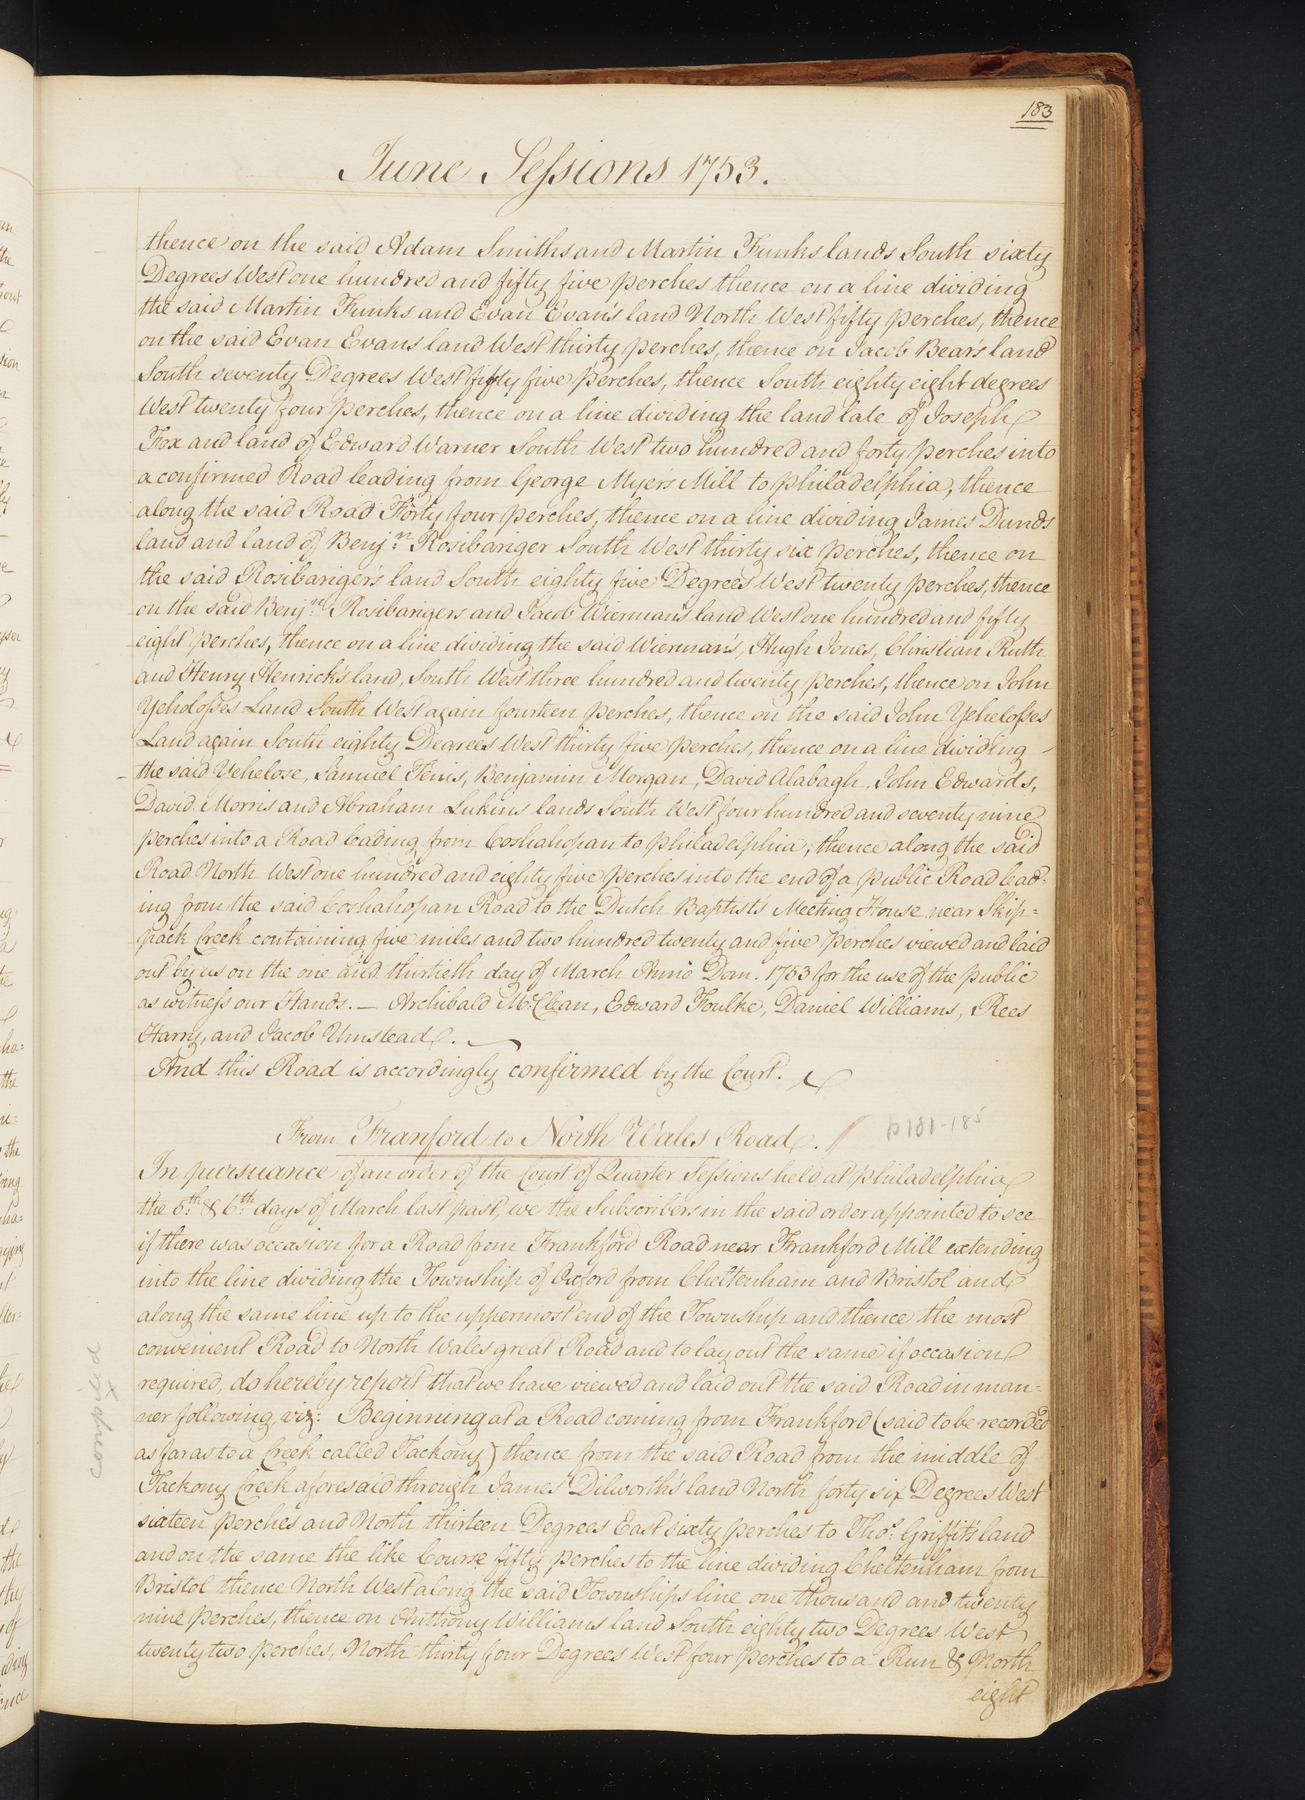 183
June Sessions 1753.
thence on the said Adam Smiths and Martin Funks lands South sixty
Degrees West one hundred and fifty five perches thence on a line dividing
the said Martin Funks and Evan Evan's land North West fifty perches, thence
on the said Evan Evans land West thirty perches, thence on Jacob Bear's land
South seventy Degrees West fifty five perches, thence South eighty eight degrees
West twenty four perches, thence on a line dividing the land late of Joseph
Fox and land of Edward Warner South West two hundred and forty perches into
a confirmed Road leading from George Myers Mill to Philadelphia, thence
along the said Road Forty four perches, thence on a line dividing James Dunds
land and land of Benj.n Rosibariger South West thirty six perches, thence on
the said Rosibariger's land South eighty five Degrees West twenty perches, thence
on the said Benj.n Rosibarigers and Jacob Wierman's land West one hundred and fifty
eight perches, thence on a line dividing the said Wierman's, Hugh Jones, Christian Ruth
and Henry Henrick's land, South West three hundred and twenty perches, thence on John
Yeholosses Land South West again fourteen perches, thence on the said John Yehelosses
Land again South eighty Degrees West thirty five perches, thence on a line dividing
the said Yehelose, Samuel Tenis, Benjamin Morgan, David Alabagh, John Edwards,
David Morris and Abraham Lukins lands South West four hundred and seventy nine
perches into a Road leading from Coshahopan to Philadelphia; thence along the said
Road North West one hundred and eighty five perches into the end of a public Road lead=
ing from the said Coshahopan Road to the Dutch Baptists Meeting House near Skip=
pack Creek containing five miles and two hundred twenty and five perches viewed and laid
out by us on the one and thirtieth day of March Anno Dom. 1753 for the use of the public
as witness our Hands. — Archibald McClean, Edward Foulke, Daniel Williams, Rees
Harry, and Jacob Umstead.
And this Road is accordingly confirmed by the Court.
From Franford to North Wales Road. p 181-185
In pursuance of an order of the Court of Quarter Sessions held at Philadelphia
the 5th & 6th days of March last past, we the Subscribers in the said order appointed to see
if there was occasion for a Road from Frankford Road near Frankford Mill extending
into the line dividing the Township of Oxford from Cheltenham and Bristol and
along the same line up to the uppermost end of the Township and thence the most
convenient Road to North Wales great Road and to lay out the same if occasion
required, do hereby report that we have viewed and laid out the said Road in man=
ner following, viz: Beginning at a Road coming from Frankford (said to be recorded
as far as to a Creek called Tackony) thence from the said Road from the middle of
Tackony Creek aforesaid through James Dilworth's land North forty six Degrees West
sixteen perches and North thirteen Degrees East sixty perches to Tho.s Griffit's land
and on the same the like Course fifty perches to the line dividing Cheltenham from
Bristol thence North West along the said Townships line one thousand and twenty
nine perches, thence on Anthony Williams land South eighty two Degrees West
twenty two perches, North thirty four Degrees West four perches to a Run & North
eight
compiled
x